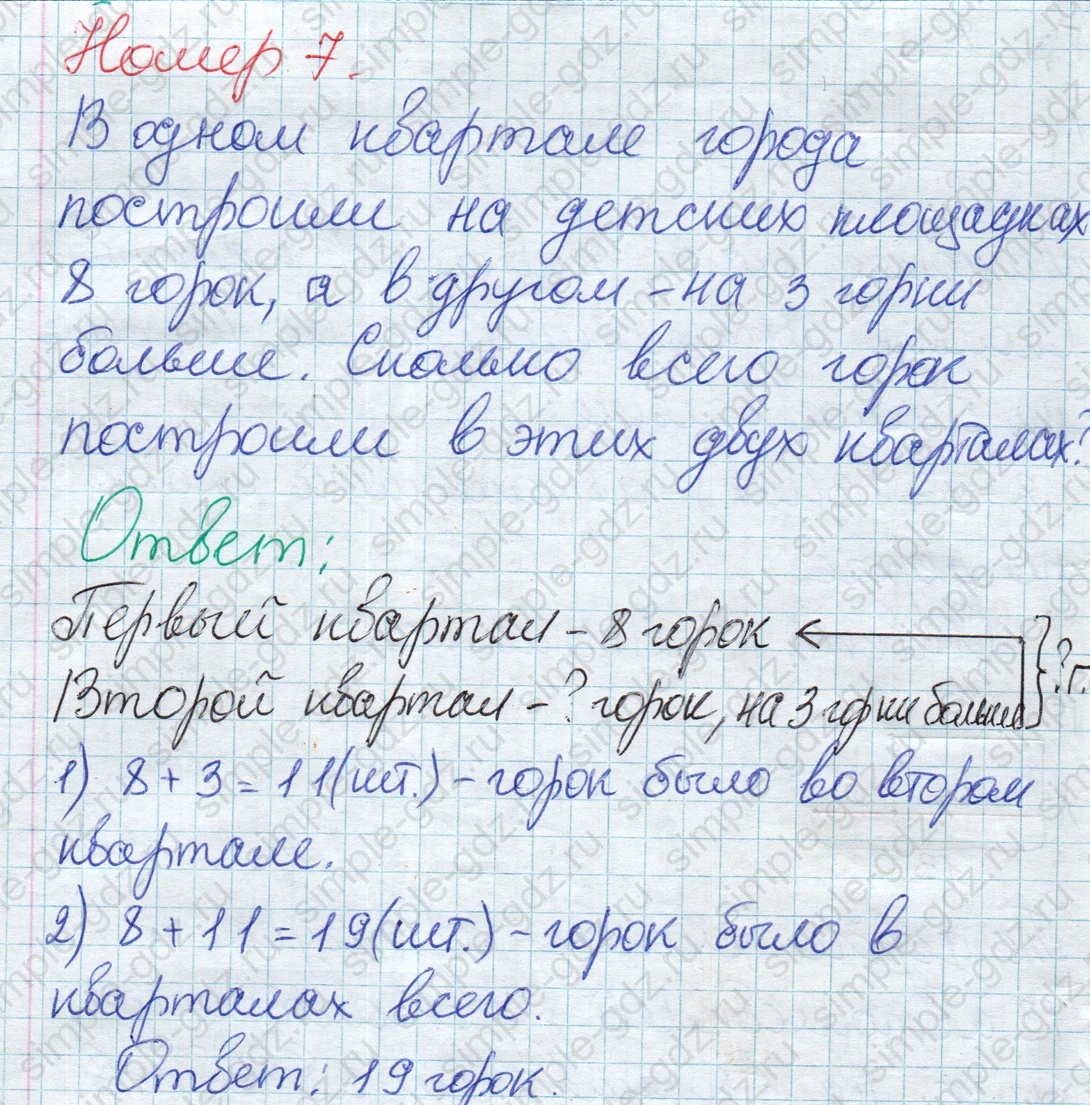 Номер 7.
В одном квартале города
построили на детских площадках
8 горок, а в другом – на 3 горки
больше. Сколько всего горок
построили в этих двух кварталах?
Ответ:
Первый квартал – 8 горок
Второй квартал – ? горок, на 3 горки больше
? г.
1) 8 + 3 = 11 (шт.) – горок было во втором
квартале.
2) 8 + 11 = 19 (шт.) – горок было в
кварталах всего.
Ответ: 19 горок.
simple-gdz.ru